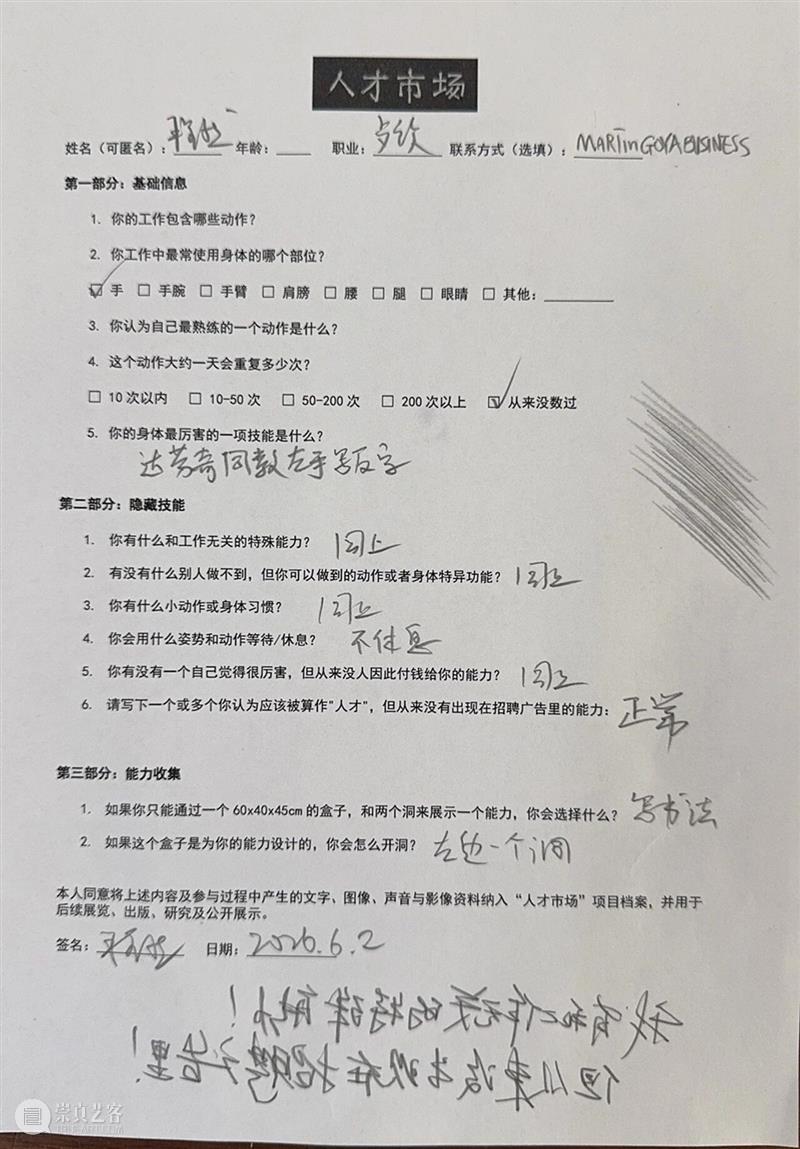 人才市场
姓名（可匿名）： 年龄： 职业： 联系方式（选填）：MARTinGOYABUSINESS
第一部分：基础信息
1. 你的工作包含哪些动作？
2. 你工作中最常使用身体的哪个部位？
☑ 手 □ 手腕 □ 手臂 □ 肩膀 □ 腰 □ 腿 □ 眼睛 □ 其他：
3. 你认为自己最熟练的一个动作是什么？
4. 这个动作大约一天会重复多少次？
□ 10 次以内 □ 10-50 次 □ 50-200 次 □ 200 次以上 ☑ 从来没数过
5. 你的身体最厉害的一项技能是什么？
达芬奇同款左手写反字
第二部分：隐藏技能
1. 你有什么和工作无关的特殊能力？ 同上
2. 有没有什么别人做不到，但你可以做到的动作或者身体特异功能？ 同上
3. 你有什么小动作或身体习惯？ 同上
4. 你会用什么姿势和动作等待/休息？ 不休息
5. 你有没有一个自己觉得很厉害，但从来没人因此付钱给你的能力？ 同上
6. 请写下一个或多个你认为应该被算作"人才"，但从来没有出现在招聘广告里的能力： 正常
第三部分：能力收集
1. 如果你只能通过一个 60x40x45cm 的盒子，和两个洞来展示一个能力，你会选择什么？ 写书法
2. 如果这个盒子是为你的能力设计的，你会怎么开洞？ 左边一个洞
本人同意将上述内容及参与过程中产生的文字、图像、声音与影像资料纳入“人才市场”项目档案，并用于
后续展览、出版、研究及公开展示。
签名： 日期：2026.6.2
我有和工作无关的特殊能力！
但从来没出现在招聘广告里！
崇真艺客
TRUE-ART.COM